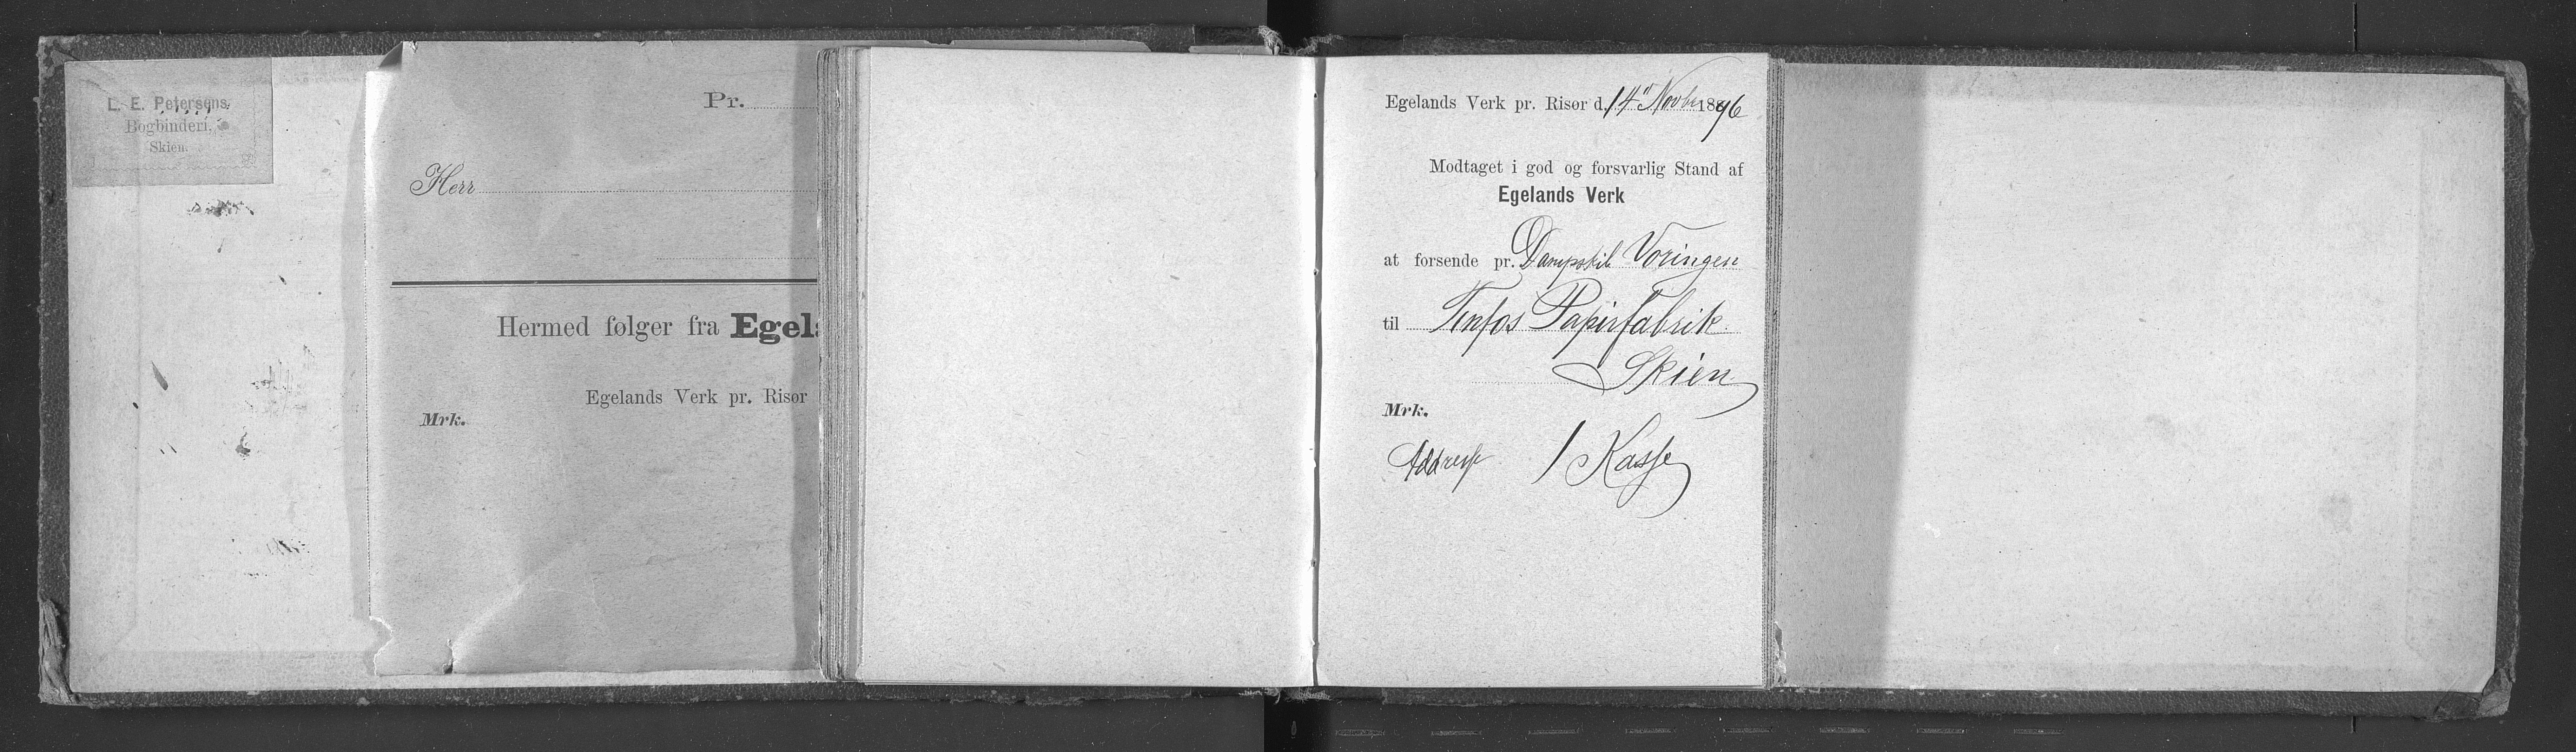 L. E. Petersens
Bogbinderi,
Skien.
Pr.
Herr
Hermed følger fra Egel
Egelands Verk pr. Risør
Mrk.
Egelands Verk pr. Risør d. 14" Novbr 1896
Modtaget i god og forsvarlig Stand af
Egelands Verk
at forsende pr. Dampskib Vøringen
til Tinfos Papirfabrik
Skien
Mrk.
Addresse 1 Kasse